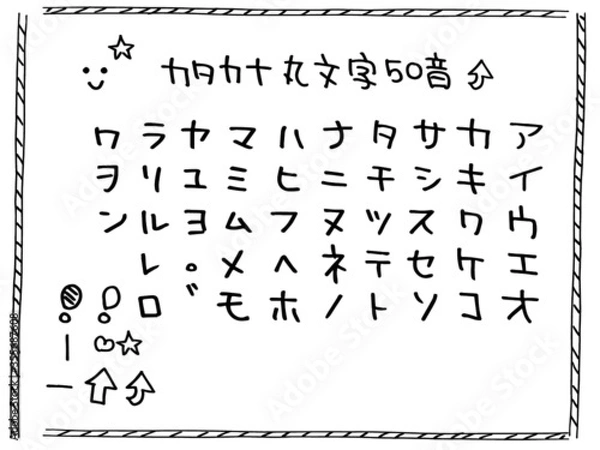 カタカナ丸文字50音⤴
アイウエオ
カキクケコ
サシスセソ
タチツテト
ナニヌネノ
ハヒフヘホ
マミムメモ
ヤユヨ゜゛
ラリルレロ
ワヲン
!!
Adobe Stock